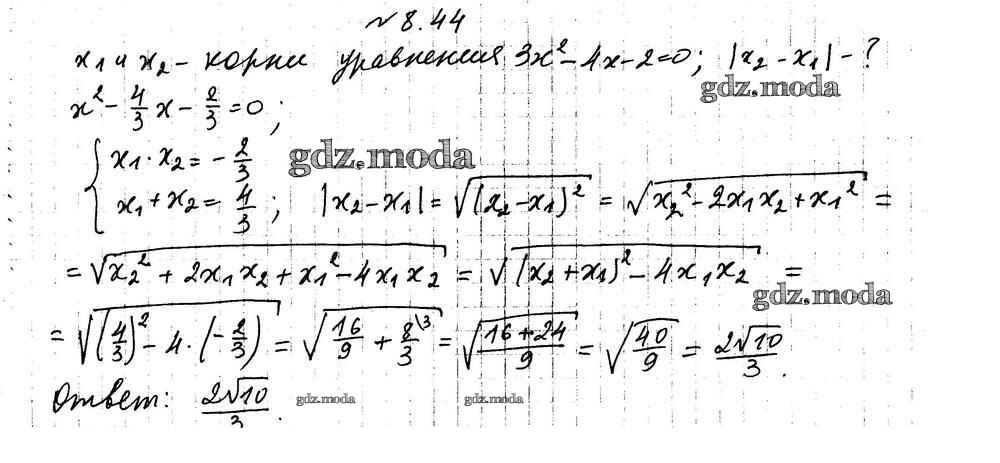 № 8.44
x₁ и x₂ - корни уравнения 3x² - 4x - 2 = 0; |x₂ - x₁| - ?
gdz.moda
x² - 4/3 x - 2/3 = 0;
{ x₁ · x₂ = - 2/3
gdz.moda
x₁ + x₂ = 4/3; |x₂ - x₁| = √(x₂ - x₁)² = √x₂² - 2x₁x₂ + x₁² =
= √x₂² + 2x₁x₂ + x₁² - 4x₁x₂ = √(x₂ + x₁)² - 4x₁x₂ =
gdz.moda
= √(4/3)² - 4 · (- 2/3) = √16/9 + 8/3 \3 = √16 + 24/9 = √40/9 = 2√10/3.
Ответ: 2√10/3.
gdz.moda gdz.moda